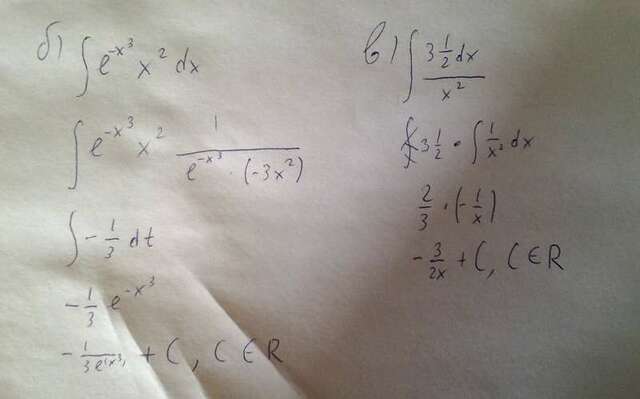 б) ∫ e^{-x^3} x^2 dx
∫ e^{-x^3} x^2 \frac{1}{e^{-x^3} · (-3x^2)}
∫ -\frac{1}{3} dt
-\frac{1}{3} e^{-x^3}
-\frac{1}{3e^{(x^3)}} + C, C ∈ R
в) ∫ \frac{3\frac{1}{2} dx}{x^2}
3\frac{1}{2} · ∫ \frac{1}{x^2} dx
\frac{2}{3} · (-\frac{1}{x})
-\frac{3}{2x} + C, C ∈ R